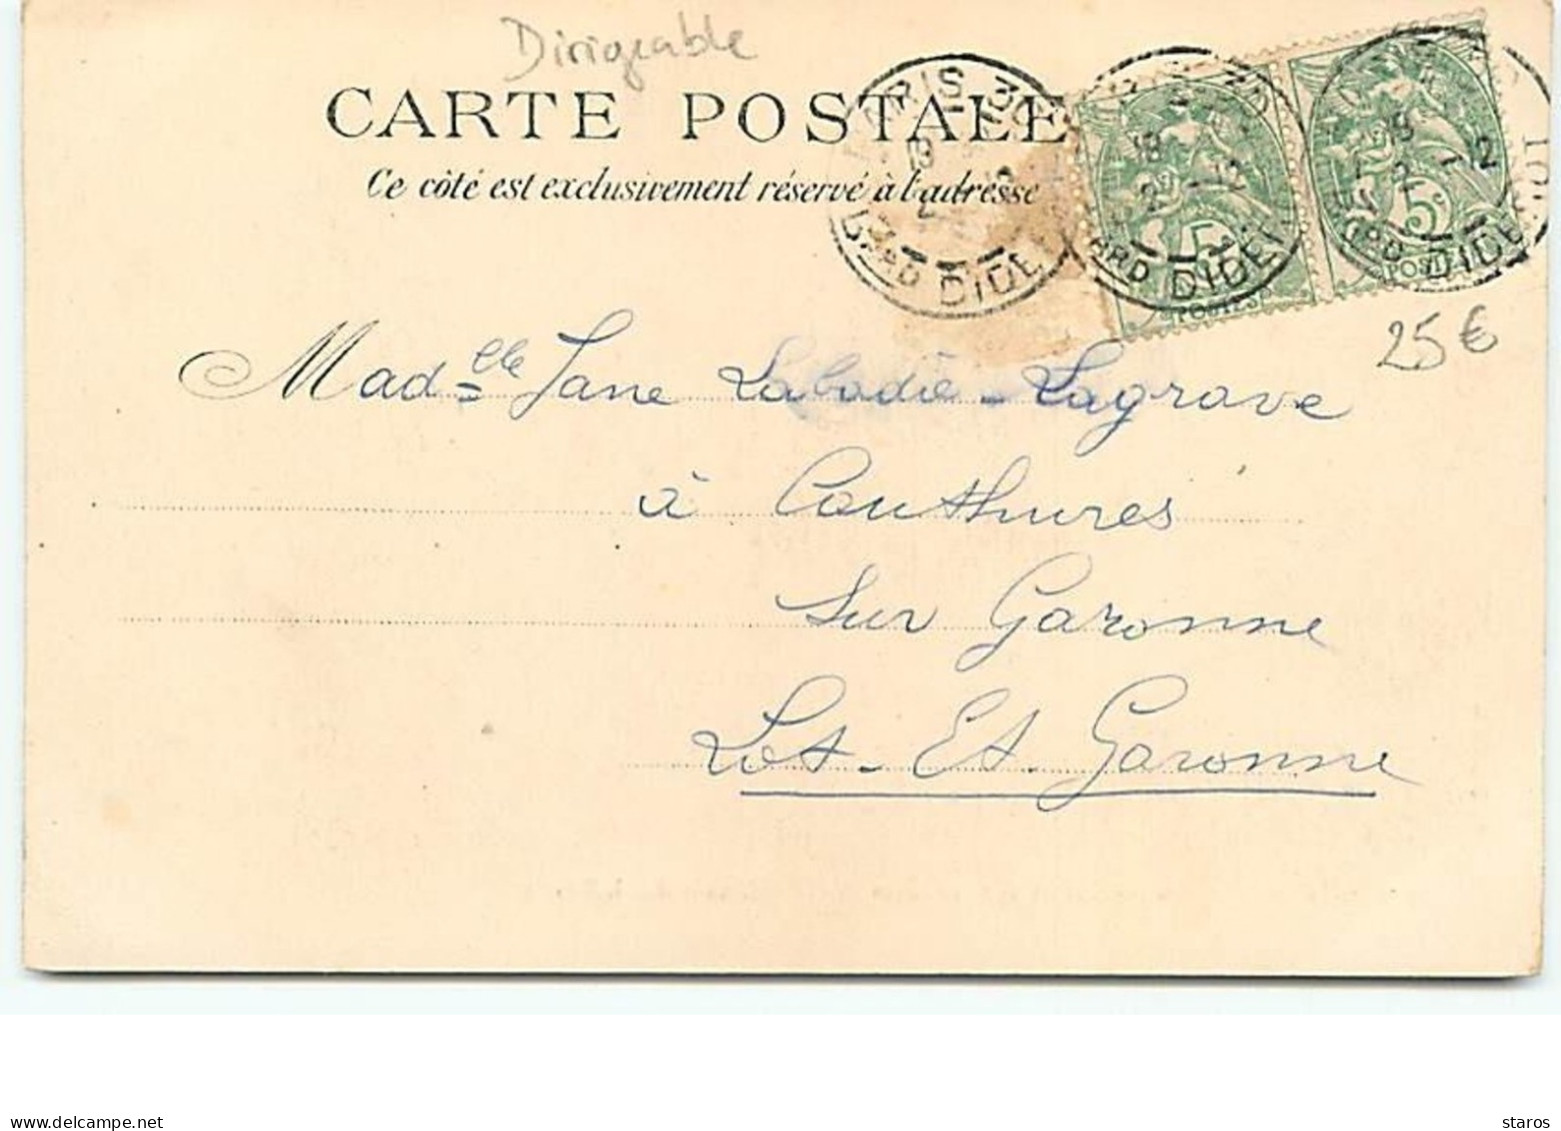 Dirigeable
CARTE POSTALE
Ce côté est exclusivement réservé à l'adresse
PARIS 30
BARD DIDE
5c
POSTES
5c
25 €
Madelle Jane Labadie-Lagrave
à Couthures
Sur Garonne
Lot-Et-Garonne
www.delcampe.net
staros